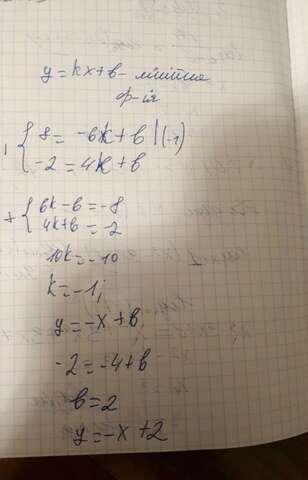 y = kx + b - лінійна
ф-ія
{ 8 = -6k + b | (-1)
-2 = 4k + b
+ { 6k - b = -8
4k + b = -2
10k = -10
k = -1;
y = -x + b
-2 = -4 + b
b = 2
y = -x + 2